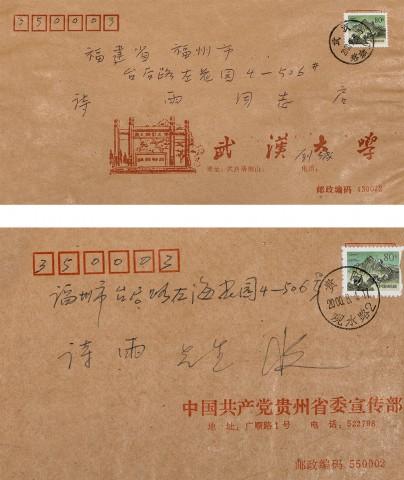 350003
80分
福建省 福州市
台江路左海花园4-506#
诗 雨 同志 启
武汉大学
地址:武昌珞珈山 电话:
邮政编码 430072
350002
80分
福州市
4-506
诗雨 先生 收
2000.8
观水路2
中国共产党贵州省委宣传部
地 址:广顺路1号 电 话:522798
邮政编码 550002